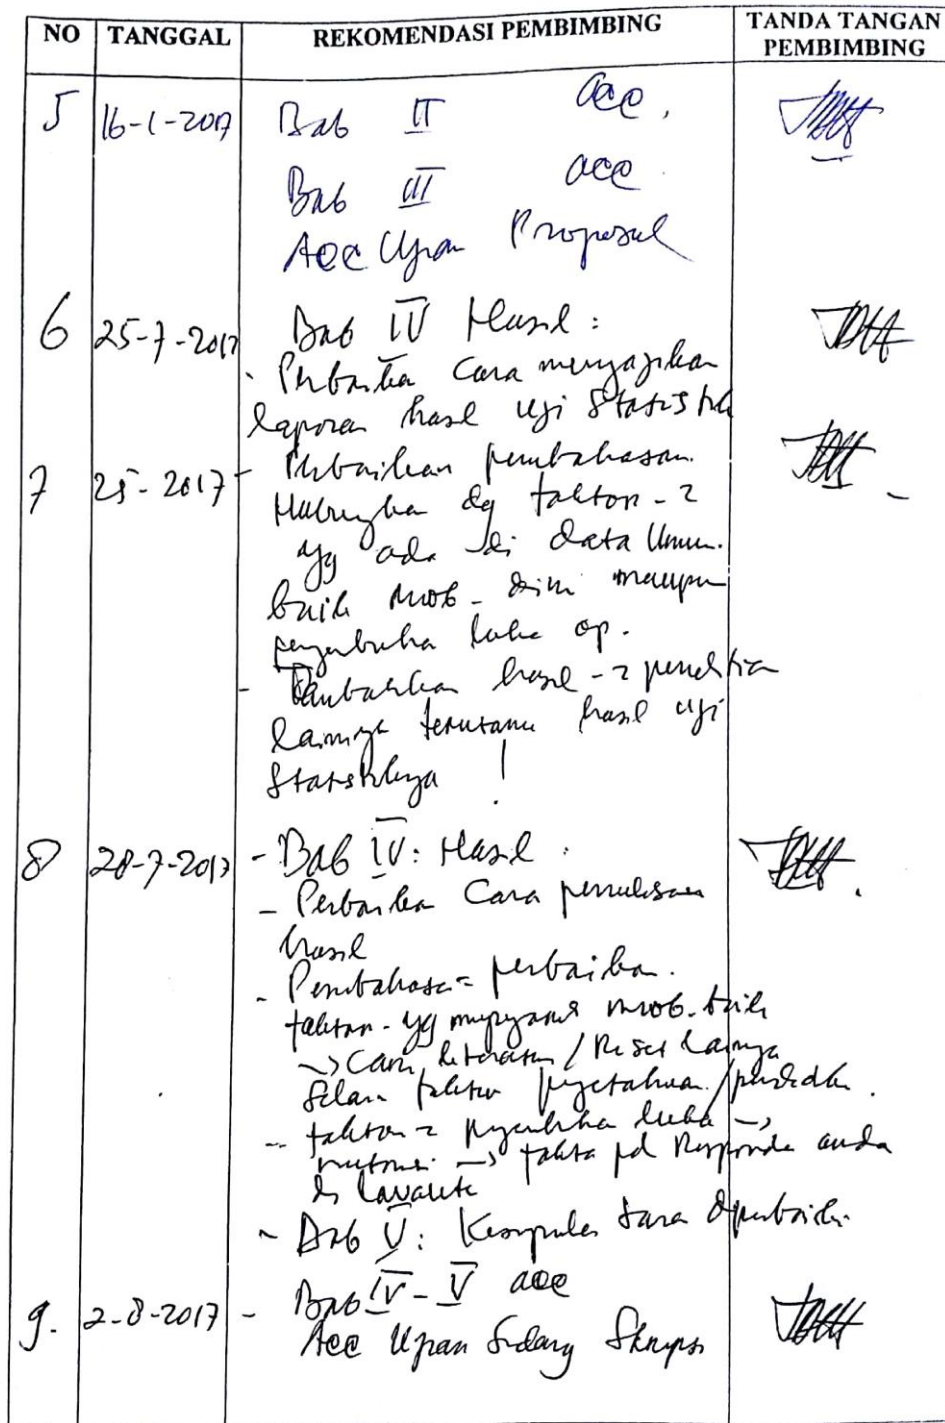 NO TANGGAL REKOMENDASI PEMBIMBING TANDA TANGAN PEMBIMBING
5 16-1-2017 Bab II acc.
Bab III acc
Acc Ujian Proposal
6 25-7-2017 Bab IV Hasil :
- Perbaikan Cara menyajikan
laporan hasil uji Statistik
7 25-2017 - Perbaikan pembahasan.
Hubungkan dg faktor-2
yg ada di data Umum.
baik mob. dini maupun
penyembuhan luka op.
- Tambahkan hasil-2 penelitian
lainnya terutama hasil uji
Statistiknya !
8 28-7-2017 - Bab IV: Hasil :
- Perbaikan Cara penulisan
hasil
- Pembahasan = perbaikan.
faktor- yg mob.
-> Cari literatur / Riset lainnya
Selain faktor pengetahuan / pendidikan.
- faktor = penyembuhan luka ->
nutrisi -> fakta pd Responden anda
di
- Bab V: Kesimpulan Saran diperbaiki
9. 2-8-2017 - Bab IV - V acc
Acc Ujian Sidang Skripsi